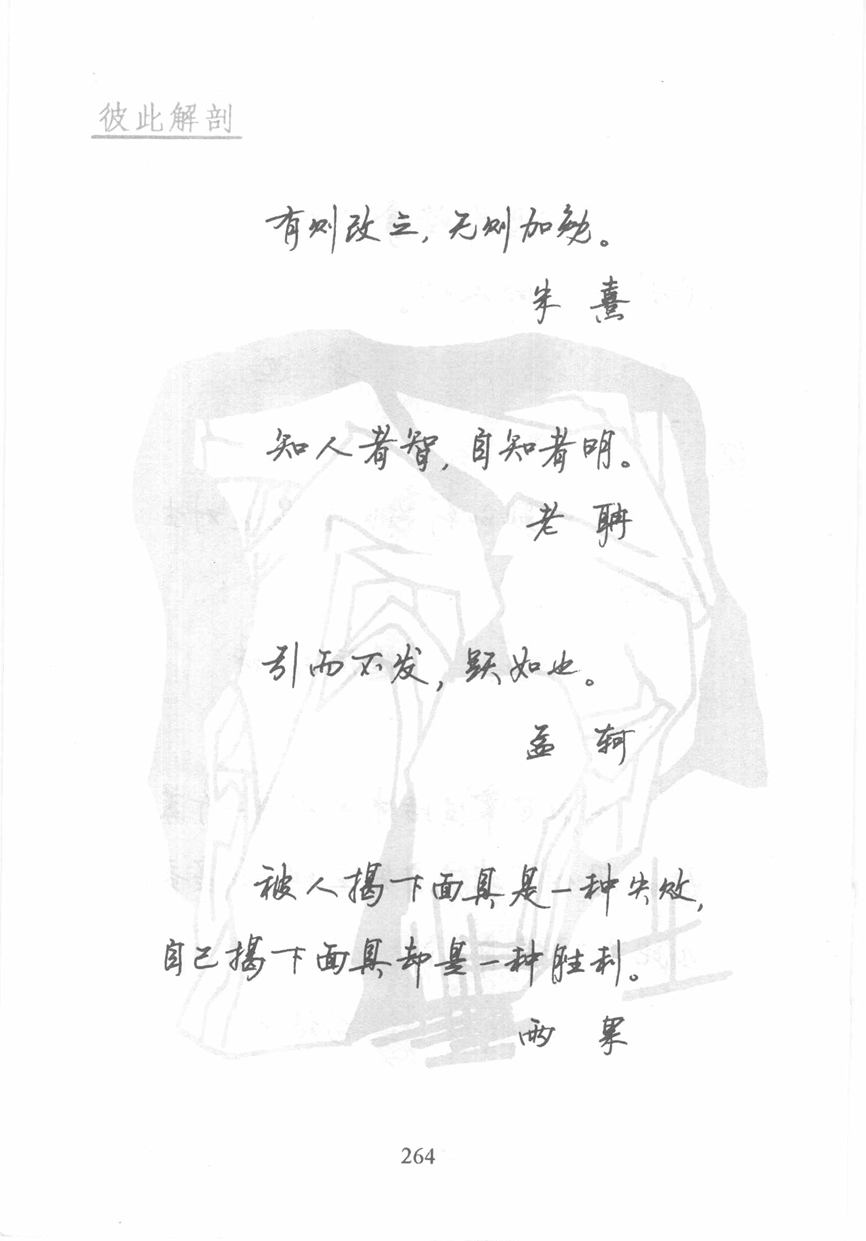 彼此解剖
有则改之，无则加勉。
朱 熹
知人者智，自知者明。
老 聃
引而不发，跃如也。
孟 轲
被人揭下面具是一种失败，
自己揭下面具却是一种胜利。
雨 果
264